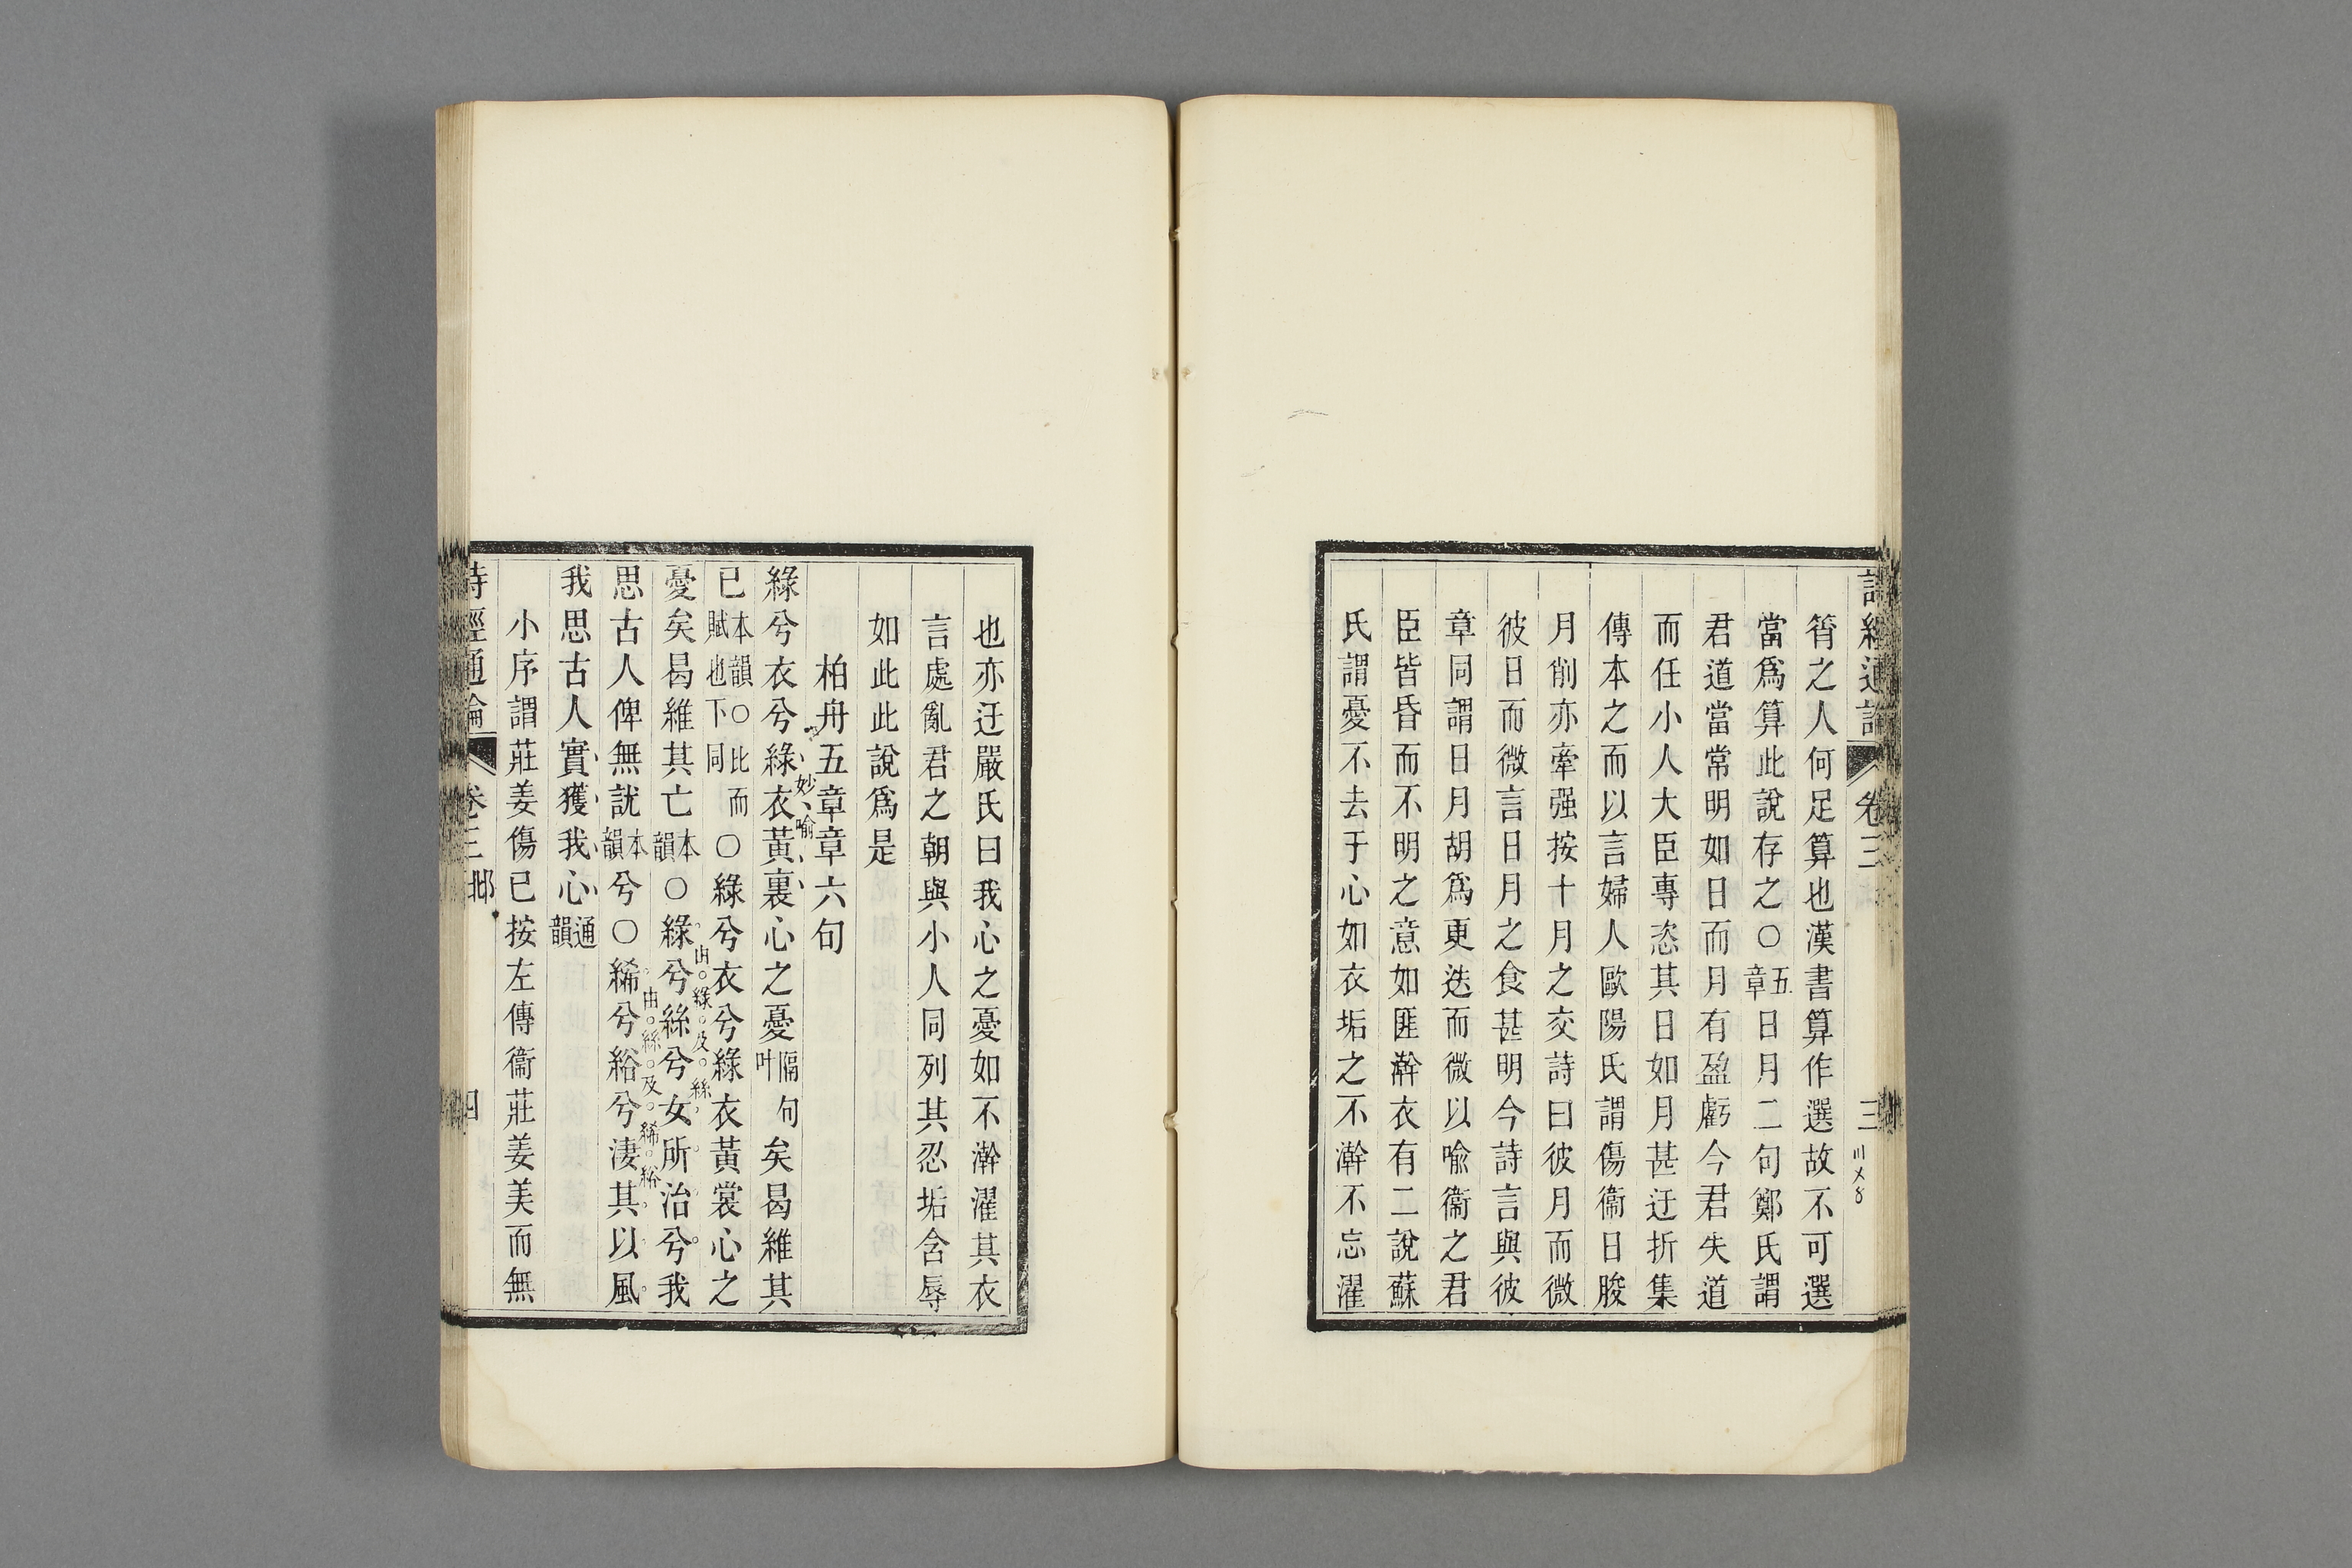 詩經通論 卷三 三
筲之人何足算也漢書算作選故不可選
當爲算此說存之○五章日月二句鄭氏謂
君道當常明如日而月有盈虧今君失道
而任小人大臣專恣其日如月甚迂折集
傳本之而以言婦人歐陽氏謂傷衞日朘
月削亦牽强按十月之交詩曰彼月而微
彼日而微言日月之食甚明今詩言與彼
章同謂日月胡爲更迭而微以喻衞之君
臣皆昏而不明之意如匪澣衣有二說蘇
氏謂憂不去于心如衣垢之不澣不忘濯
也亦迂嚴氏曰我心之憂如不澣濯其衣
言處亂君之朝與小人同列其忍垢含辱
如此此說爲是
柏舟五章章六句
綠兮衣兮綠衣黃裏心之憂隔句叶矣曷維其
妙喻
已本韻○比而賦也下同○綠兮衣兮綠衣黃裳心之
憂矣曷維其亡本韻○綠兮絲兮女所治兮我
由綠及絲
思古人俾無訧本韻兮○絺兮綌兮淒其以風
由絲及絺綌
我思古人實獲我心通韻
小序謂莊姜傷已按左傳衞莊姜美而無
詩經通論 卷三 邶 四